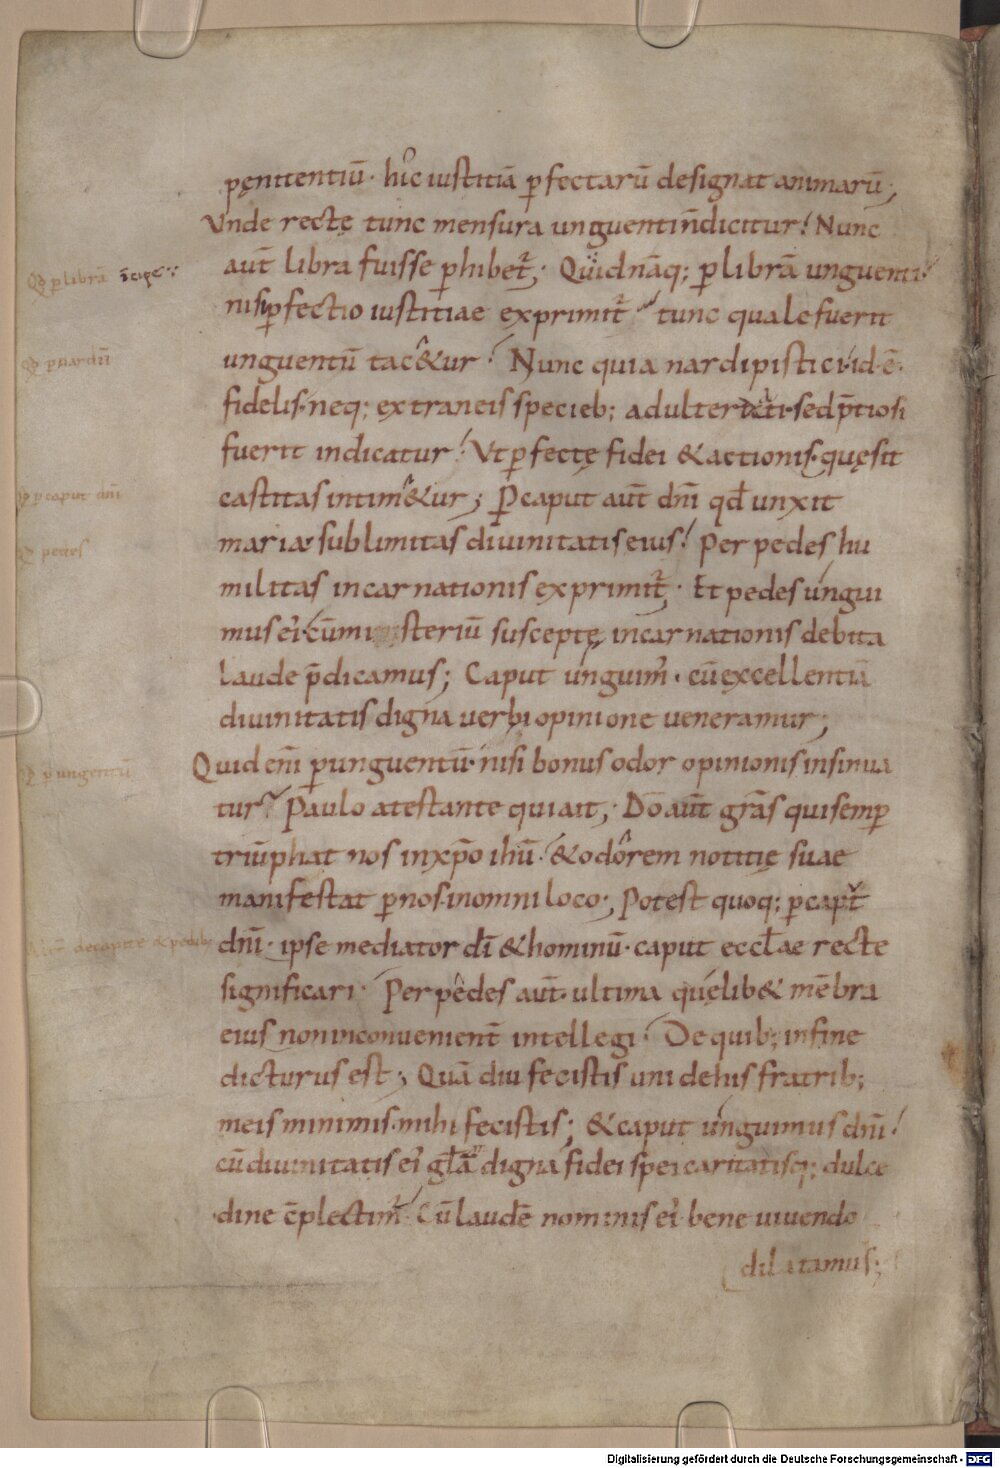 pęnitentiū· hic iustitiā pfectarū designat animarū;
Vnde rectę tunc mensura unguenti n̄ dicitur! Nunc
aut̄ libra fuisse phibet̄; Quid nāq; p librā unguenti
Qd p librā
nisi pfectio iustitiae exprimit̄ tunc quale fuerit
unguentū tac&ur! Nunc quia nardi pistici·id·ē·
Qd p nardū
fidelis·neq; extraneis specieb; adulterati·sed p̄tiosi
fuerit indicatur! Vt pfectę fidei & actionis·quęsit
castitas intim&ur; P caput aut̄ dn̄i qd unxit
Qd p caput dn̄i
maria sublimitas diuinitatis eius! Per pedes hu
Qd pedes
militas incarnationis exprimit̄· Et pedes ungui
mus ei·cū misterium susceptę incarnationis debita
laude p̄dicamus; Caput unguim̄· cū excellentiā
diuinitatis digna uerbi opinione ueneramur;
Quid eni punguentū· nisi bonus odor opinionis insinua
Qd p ungentū
tur? Paulo atestante qui ait; Dō aut̄ grās qui semp
triūphat nos in xp̄o ihū·& odorem notitię suae
manifestat p nos·in omni loco; Potest quoq; p caput
dn̄i· ipse mediator dī & hominū· caput eccl̄ae recte
decapite & pedib;
significari· Per pedes aut̄· ultima quęlib& mēbra
eius non inconuenient̄ intellegi· De quib; in fine
dicturus est; Quā diu fecistis uni de his fratrib;
meis minimis·mihi fecistis; & caput unguimus dn̄i!
cū diuinitatis ei gl̄ā digna fidei spei caritatisq; dulce
dine cōplectim̄· Cū laudē nominis ei bene uiuendo
dilatamus;
Digitalisierung gefördert durch die Deutsche Forschungsgemeinschaft - DFG